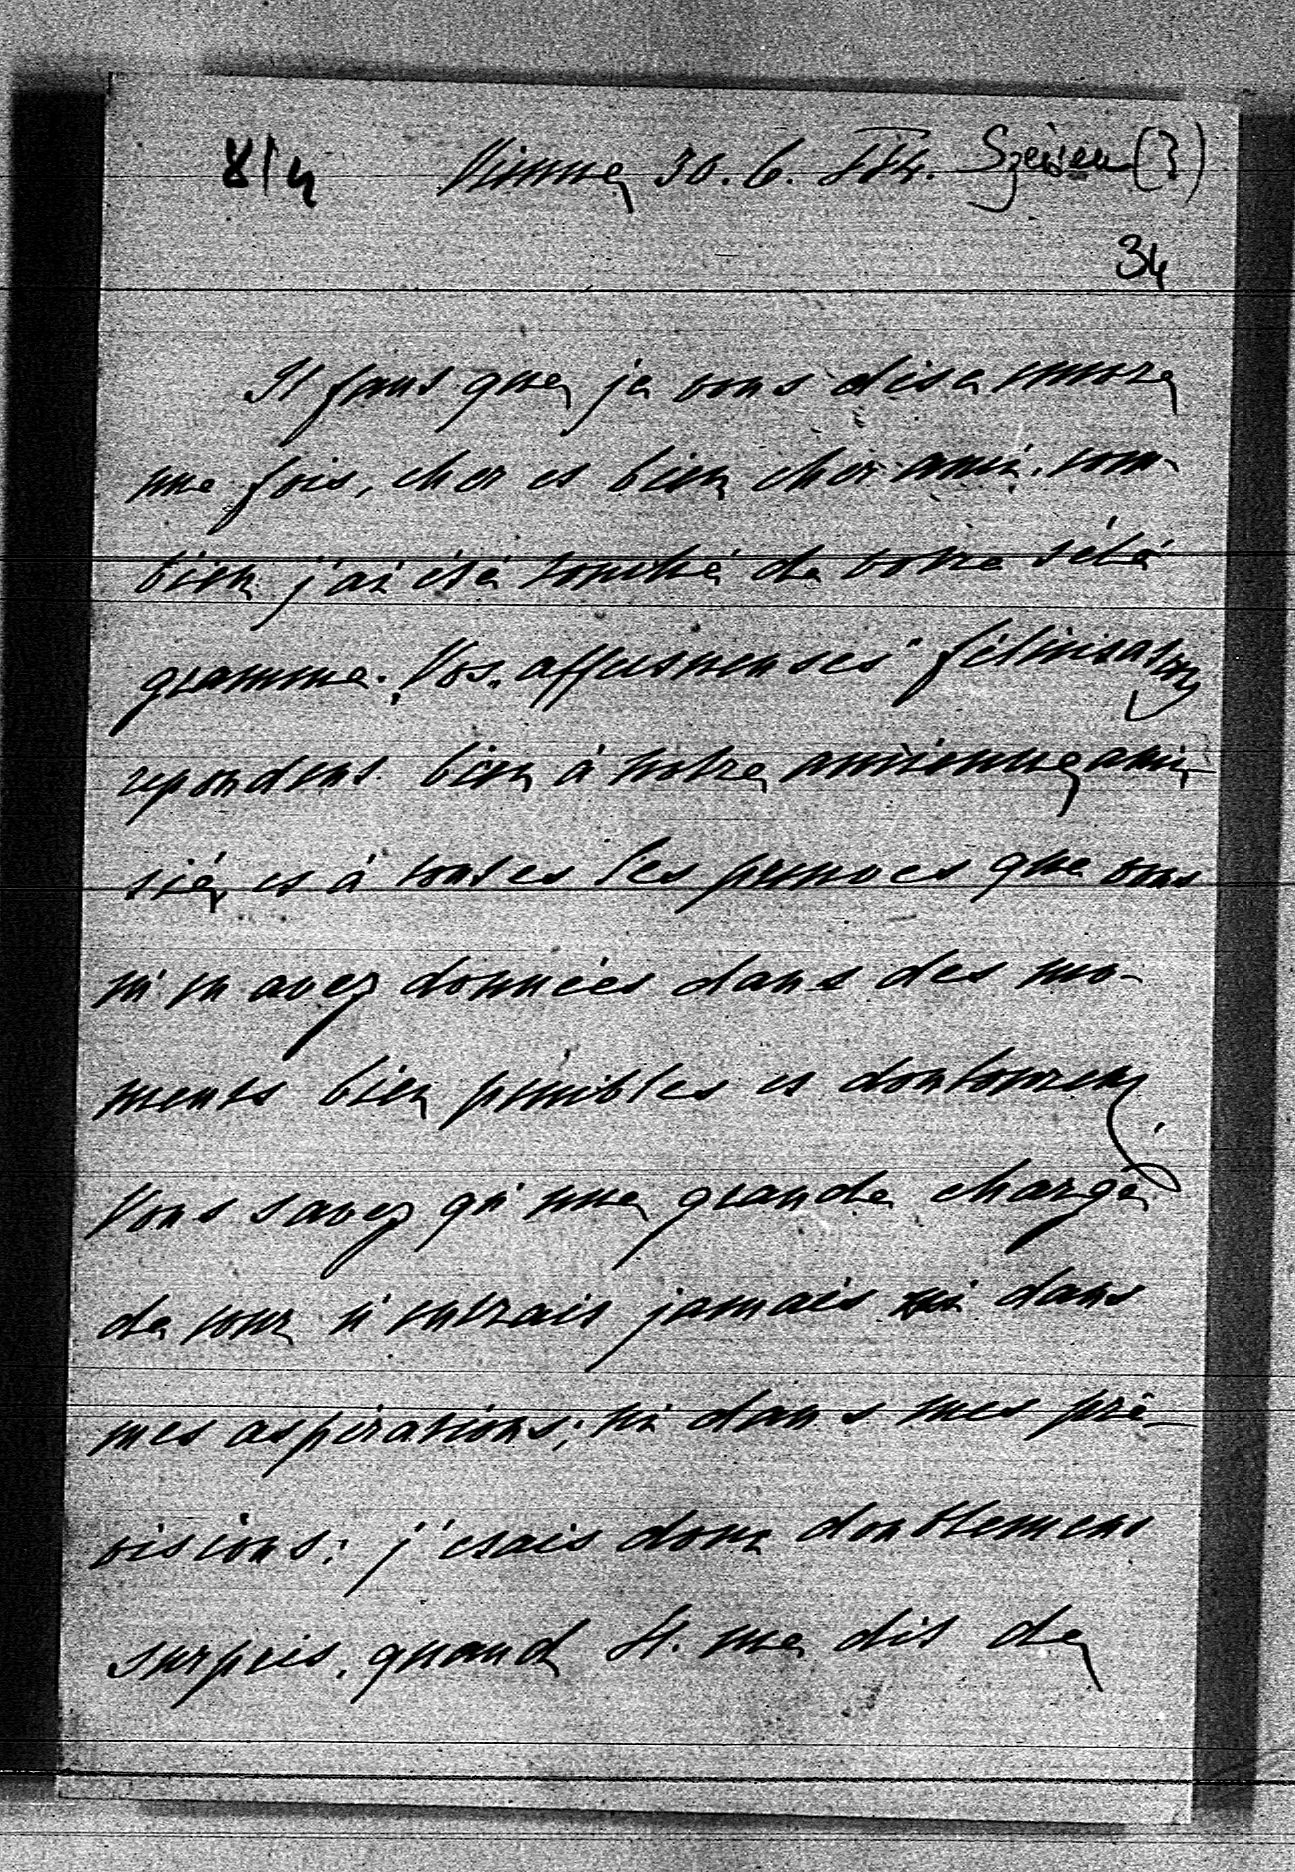 8/4 Vienne 30. 6. 884. Szécsen (?)
34
Il faut que je vous dise encore
une fois, cher et bien cher ami, com-
bien j'ai été touché de votre télé
gramme. Vos „affectueuses" félicitations
repondent bien à notre ancienne ami-
tié, et à toutes les preuves que vous
m'en avez données dans des mo-
ments bien penibles et douloureux.
Vous savez qu'une grande charge
de cour n'entrait jamais ni dans
mes aspirations; ni dans mes pré-
visions: j'étais donc doublement
surpris, quand St. me dit de